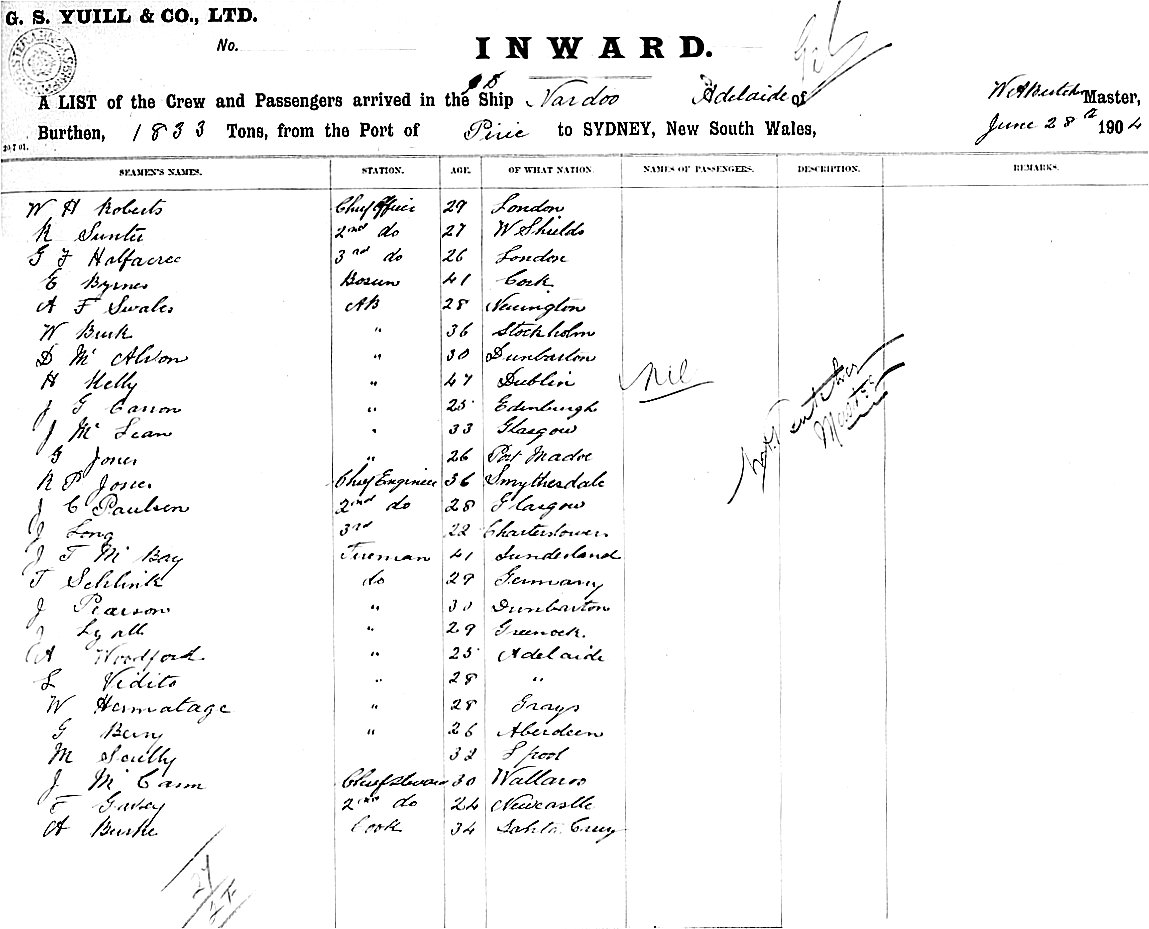 G. S. YUILL & CO., LTD.
No.
INWARD.
A LIST of the Crew and Passengers arrived in the SS Ship Nardoo Adelaide of Master,
Burthen, 1833 Tons, from the Port of Pirie to SYDNEY, New South Wales, June 28th 1904
20.7.01.
SEAMEN'S NAMES. STATION. AGE. OF WHAT NATION. NAMES OF PASSENGERS. DESCRIPTION. REMARKS.
W H Roberts Chief Officer 29 London
R Sunter 2nd do 27 W Shields
G F Halfacree 3rd do 26 London
E Byrnes Bosun 41 Cork
A F Swales AB 28 Newington
W Burk " 36 Stockholm
D Mc Alvon " 30 Dunbarton
H Kelly " 47 Dublin
Nil
J G Carron " 25 Edinburgh
J Mc Lean " 33 Glasgow
G Jones " 26 Port Madoc
R P Jones Chief Engineer 36 Smythesdale
J C Paulsen 2nd do 28 Glasgow
J Long 3rd 22 Charterstowers
J T Mc Bay Fireman 41 Sunderland
F Schlink do 29 Germany
J Pearson " 30 Dunbarton
J Lyall " 29 Greenock.
A Woodford " 25 Adelaide
L Vidito " 28 "
W Hermatage " 28 Grays
G Berry " 26 Aberdeen
M Scully 32 Lpool
J Mc Cann Chief Steward 30 Wallaroo
F Garvey 2nd do 24 Newcastle
A Burke Cook 34 Santa Cruz
Master
27